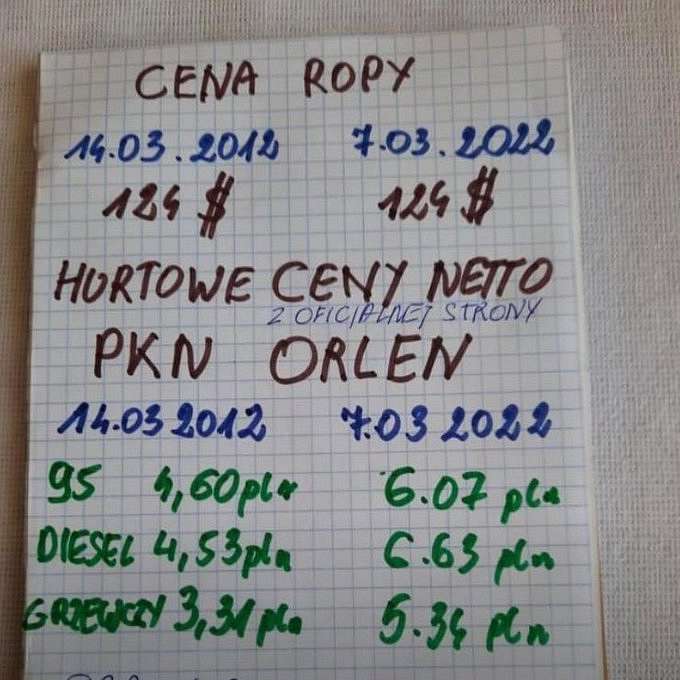 CENA ROPY
14.03.2012 7.03.2022
124 $ 124 $
HURTOWE CENY NETTO
Z OFICJALNEJ STRONY
PKN ORLEN
14.03 2012 7.03 2022
95 4,60 pln 6.07 pln
DIESEL 4,53 pln 6.63 pln
GRZEWCZY 3,31 pln 5.34 pln